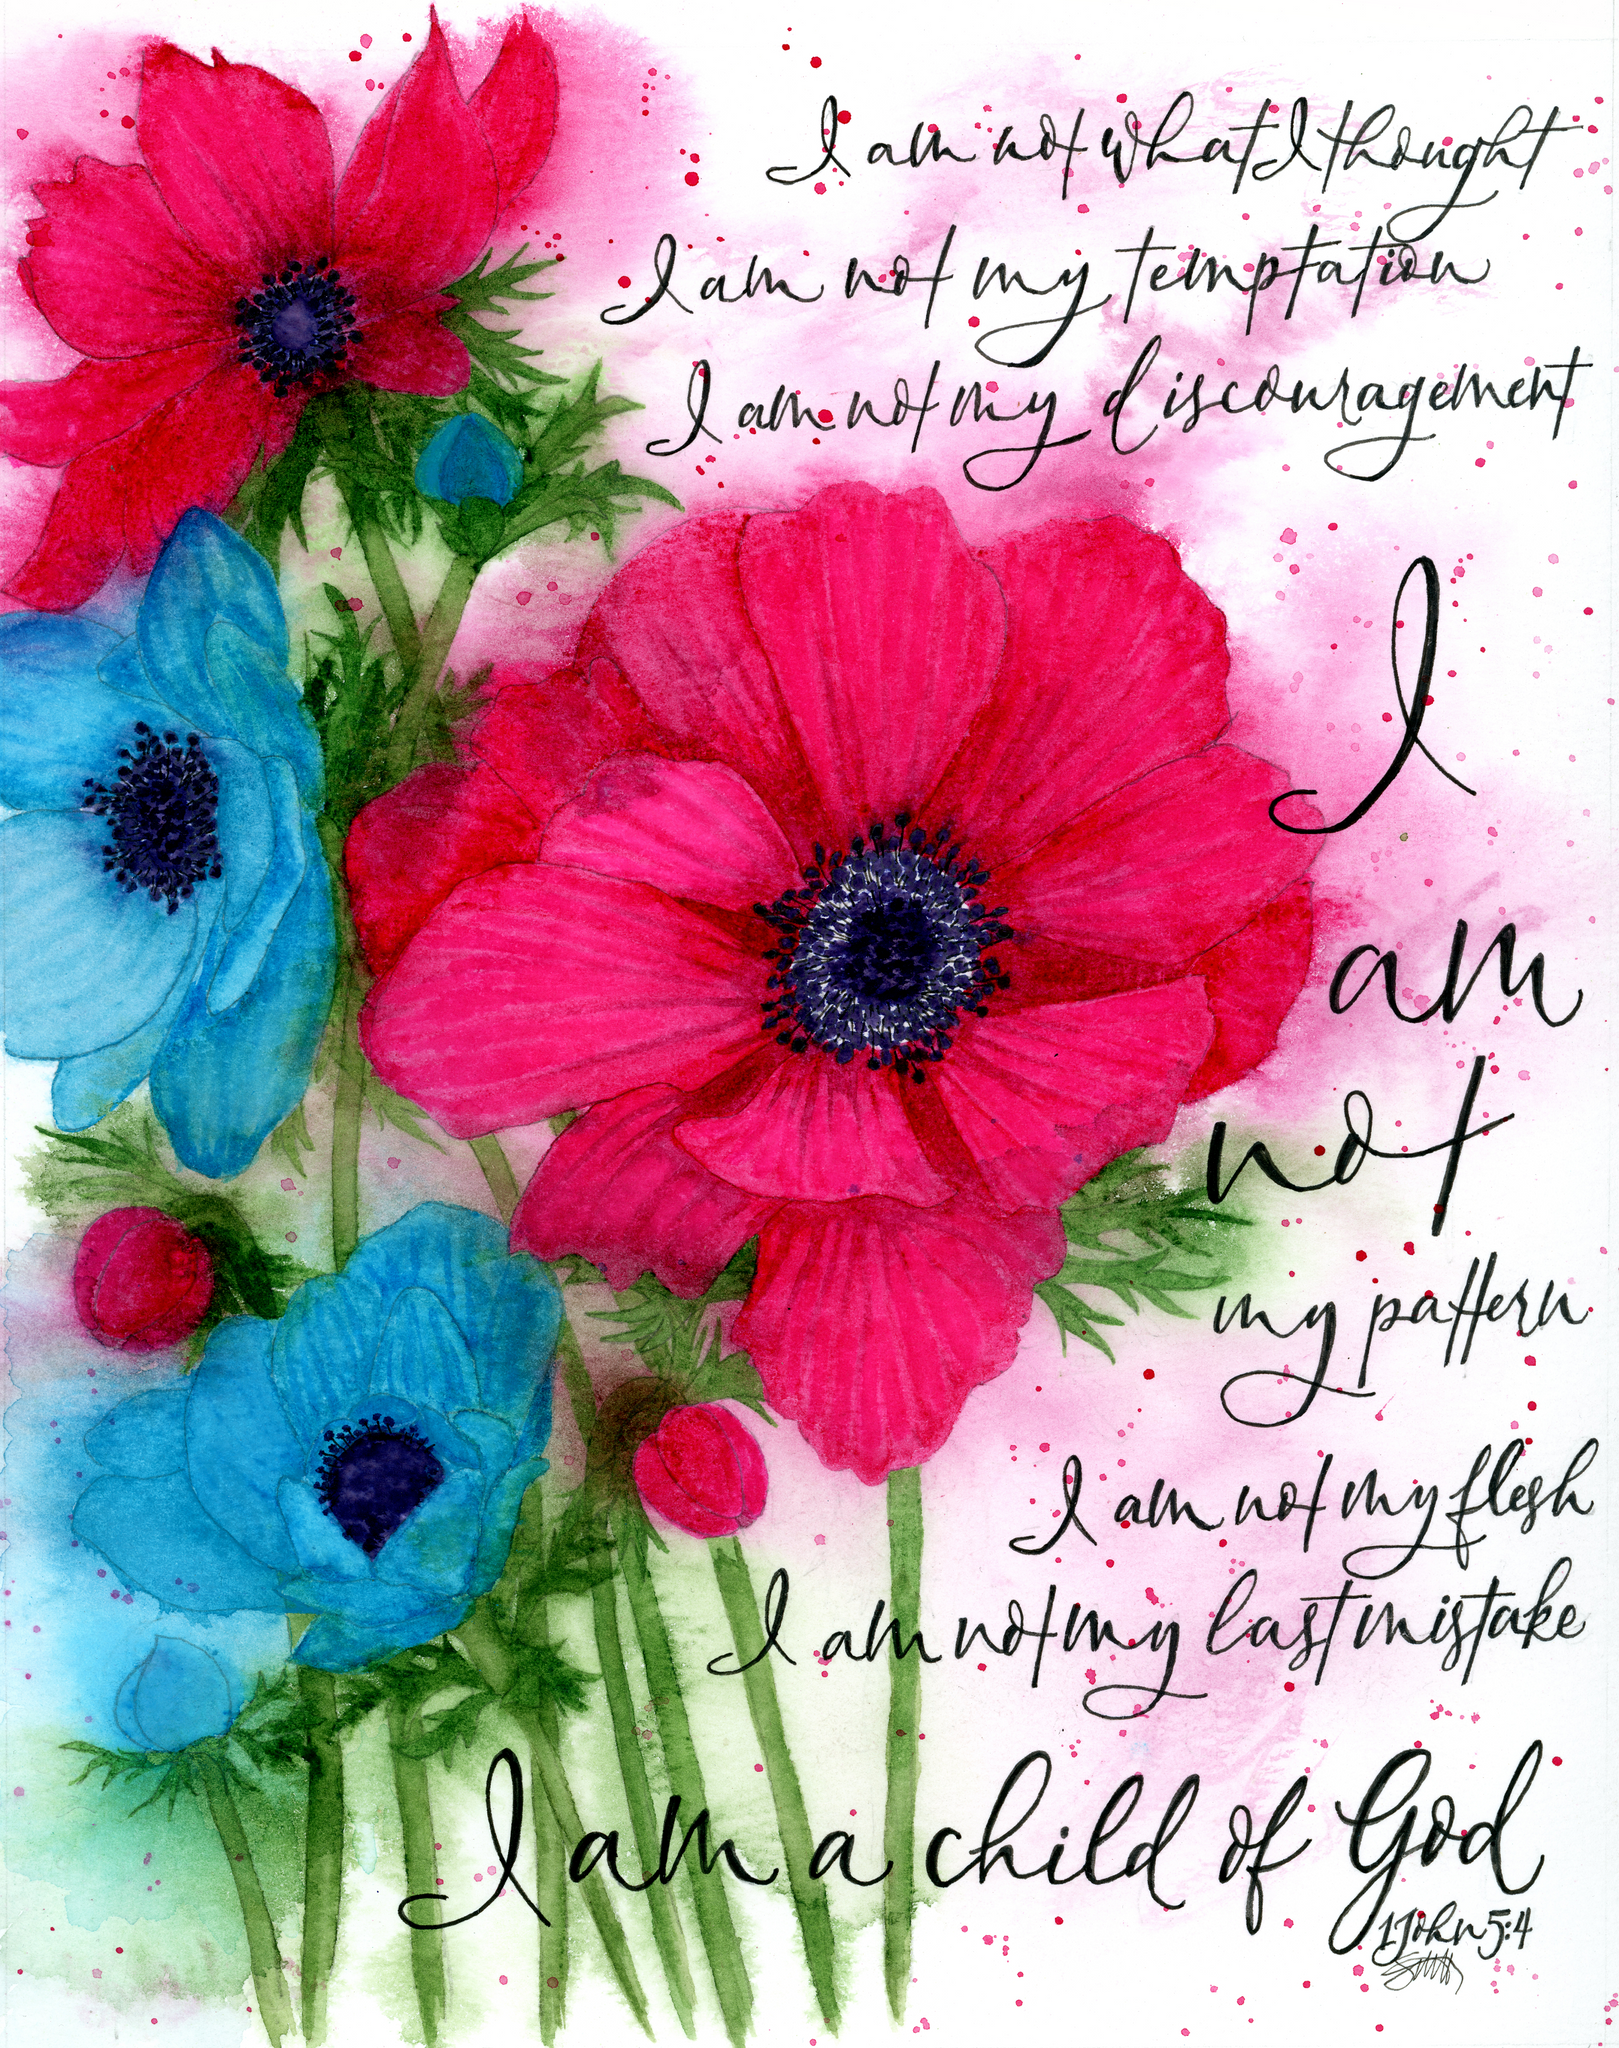 I am not what I thought
I am not my temptation
I am not my discouragement
I
am
not
my pattern
I am not my flesh
I am not my last mistake
I am a child of God
1 John 5:4